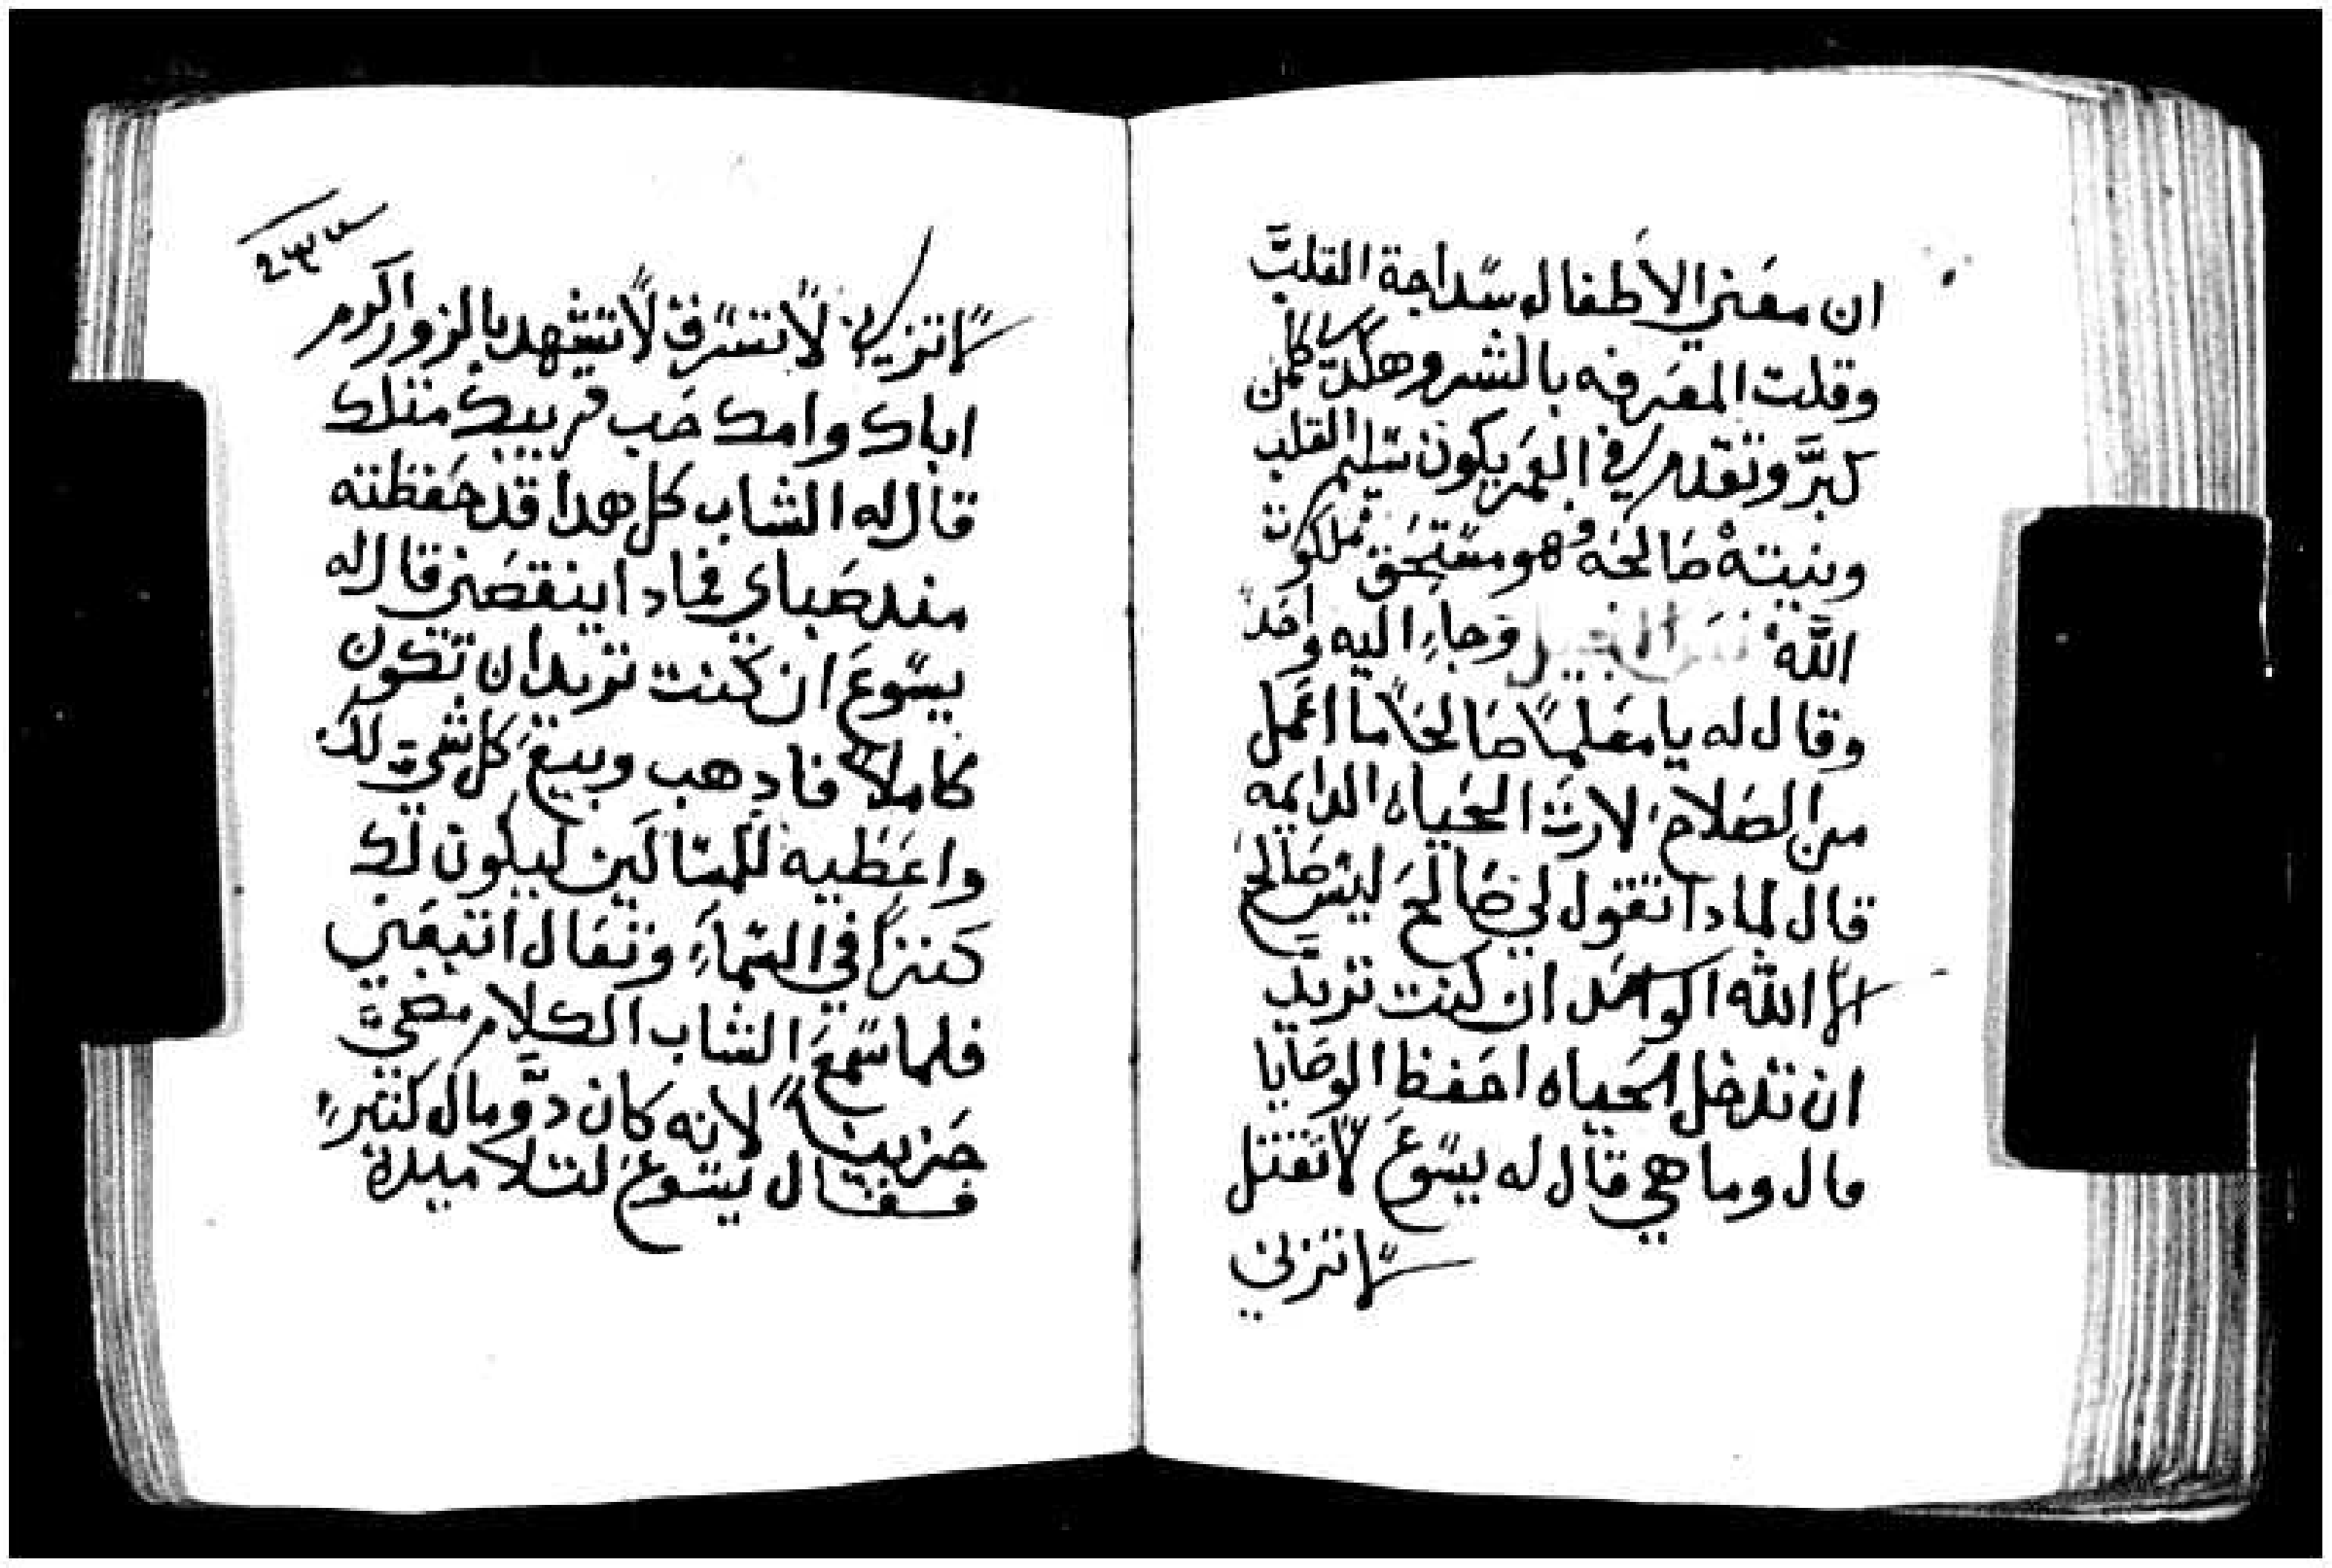 ان معني الاطفال سداجة القلب
وقلت المعرفه بالشر وهكدا كلمن
كبر وتقدم في العمر يكون سليم القلب
ونيته صالحه وهو مستحق ملكوت
الله نص الانجيل وجاء اليه واحد
وقال له يا معلمًا صالحًا ما اعمل
من الصلاح لارث الحياه الدايمه
قال لمادا تقول لي صالح ليس صالح
الا الله الواحد ان كنت تريد
ان تدخل الحياه احفظ الوصايا
قال وما هي قال له يسوع لا تقتل
لا تزني
لا تزني لا تسرق لا تشهد بالزور اكرم
اباك وامك حب قريبك مثلك
قال له الشاب كل هدا قد حفظته
مند صباي فمادا ينقصني قال له
يسوع ان كنت تريد ان تكون
كاملاً فادهب وبيع كل شي لك
واعطيه للمساكين ليكون لك
كنزًا في السماء وتعال اتبعني
فلما سمع الشاب الكلام مضي
حزينًا لانه كان دو مال كثير
فقال يسوع لتلاميده